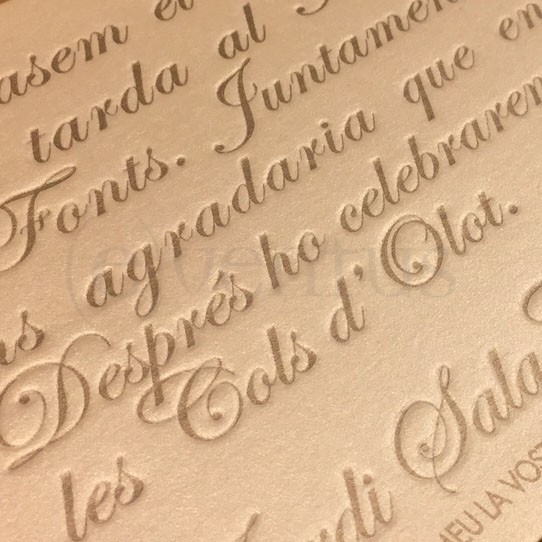 asem el
tarda al
Fonts. Juntament
agradaria que en
Després ho celebrarem
les Cols d'Olot.
Jordi Sala
MEU LA VOST
(e)ventus